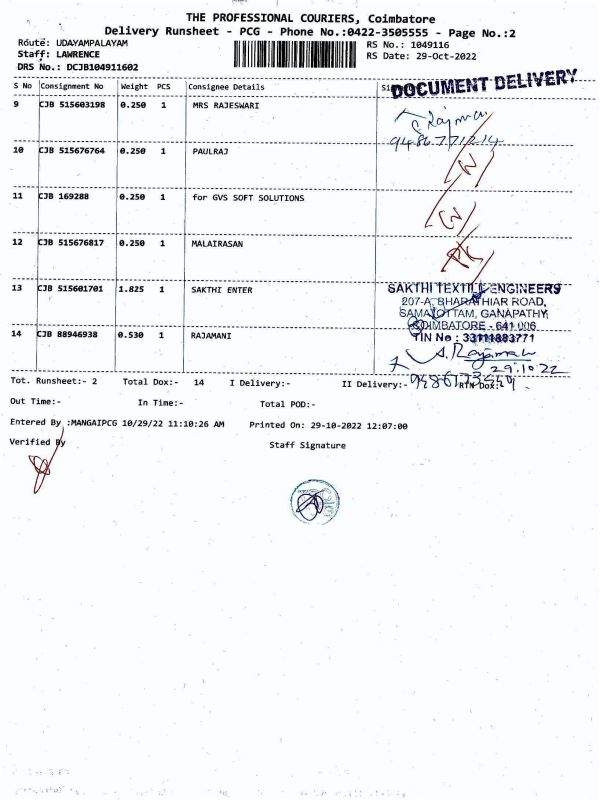 THE PROFESSIONAL COURIERS, Coimbatore
Delivery Runsheet - PCG - Phone No.:0422-3505555 - Page No.:2
Route: UDAYAMPALAYAM
Staff: LAWRENCE
DRS No.: DCJB104911602
RS No.: 1049116
RS Date: 29-Oct-2022
DOCUMENT DELIVERY
S No Consignment No Weight PCS Consignee Details
9 CJB 515603198 0.250 1 MRS RAJESWARI
10 CJB 515676764 0.250 1 PAULRAJ
11 CJB 169288 0.250 1 for GVS SOFT SOLUTIONS
12 CJB 515676817 0.250 1 MALAIRASAN
13 CJB 515601701 1.825 1 SAKTHI ENTER
SAKTHI TEXTILE ENGINEERS
207-A, BHARATHIAR ROAD,
GANAPATHY,
COIMBATORE - 641 006
TIN No : 33111883771
14 CJB 88946938 0.530 1 RAJAMANI
29.10.22
Tot. Runsheet:- 2 Total Dox:- 14 I Delivery:- II Delivery:- RTN Dox:-
Out Time:- In Time:- Total POD:-
Entered By :MANGAIPCG 10/29/22 11:10:26 AM Printed On: 29-10-2022 12:07:00
Verified By Staff Signature